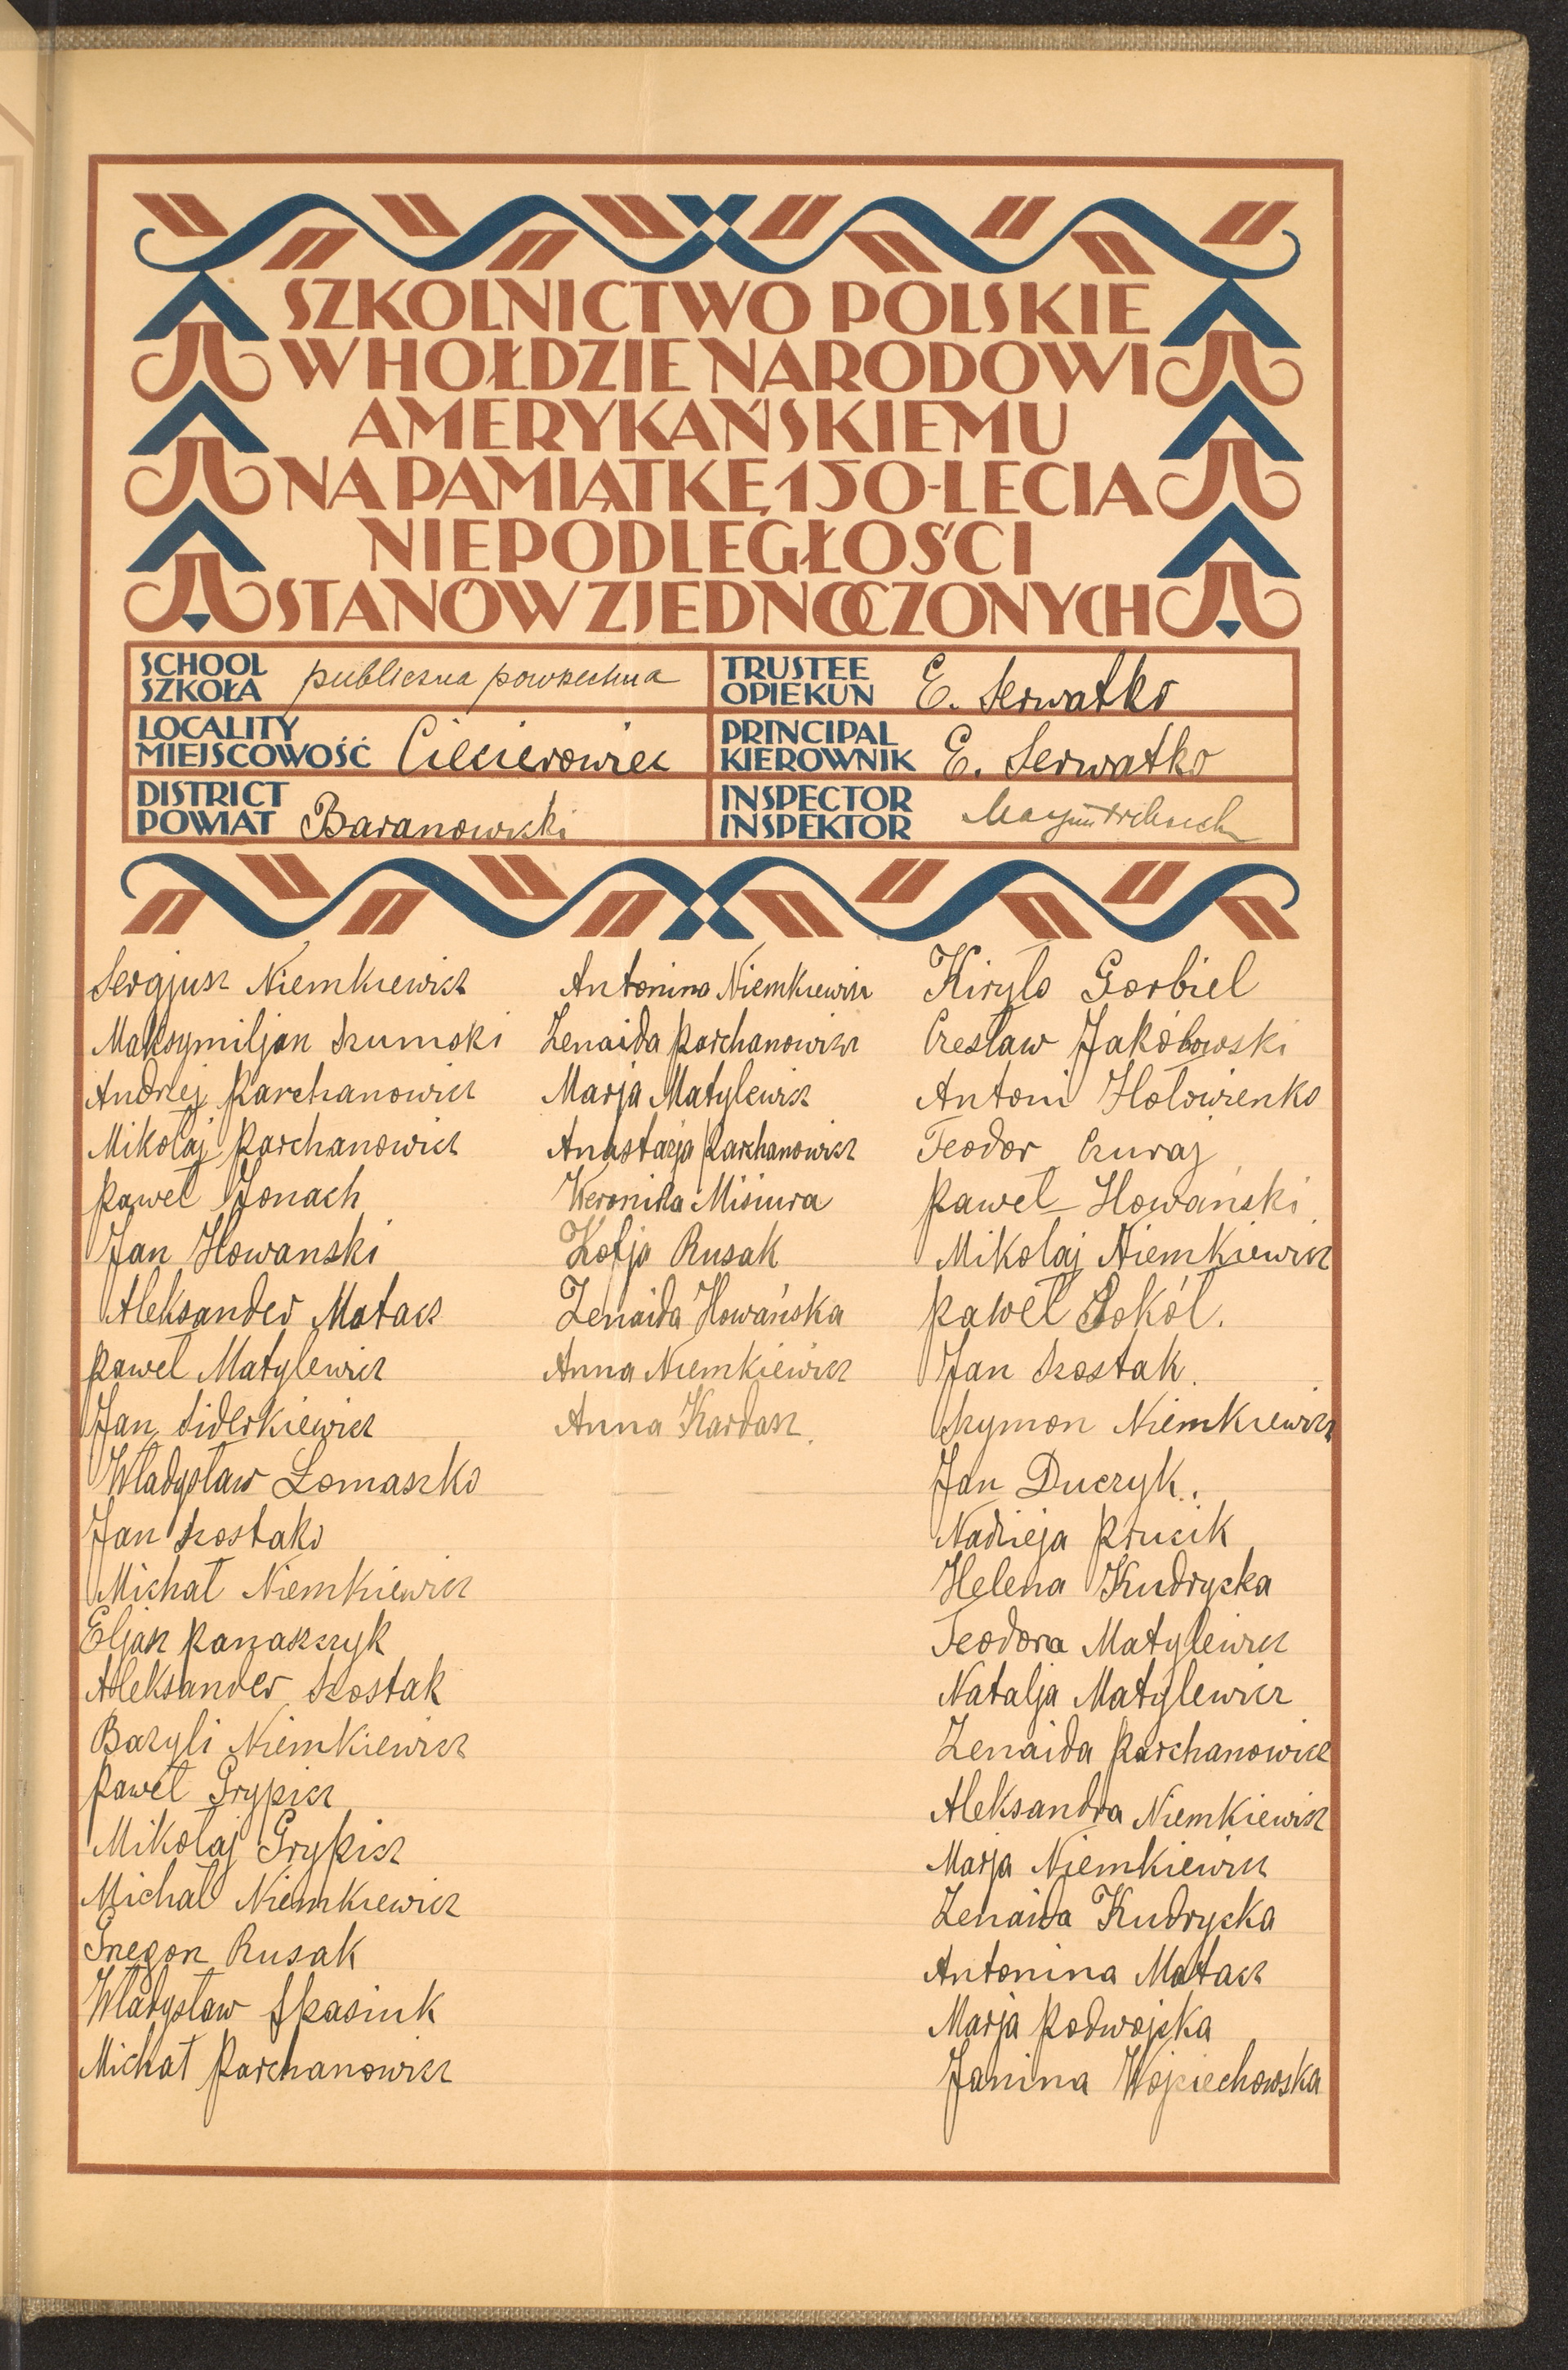 SZKOLNICTWO POLSKIE
W HOŁDZIE NARODOWI
AMERYKAŃSKIEMU
NA PAMIĄTKĘ 150-LECIA
NIEPODLEGŁOŚCI
STANÓW ZJEDNOCZONYCH
SCHOOL
SZKOŁA publiczna powszechna
TRUSTEE
OPIEKUN E. Serwatko
LOCALITY
MIEJSCOWOŚĆ Ciecierowiec
PRINCIPAL
KIEROWNIK E. Serwatko
DISTRICT
POWIAT Baranowicki
INSPECTOR
INSPEKTOR
Sergjusz Niemkiewicz
Maksymiljan Szumski
Andrzej Parchanowicz
Mikołaj Parchanowicz
Paweł Jonach
Jan Howanski
Aleksander Matacz
Paweł Matylewicz
Jan Siderkiewicz
Władysław Łomaszko
Jan Szostako
Michał Niemkiewicz
Eljasz Panaszczyk
Aleksander Szostak
Bazyli Niemkiewicz
Paweł Grypicz
Mikołaj Grypicz
Michał Niemkiewicz
Gregor Rusak
Władysław Skasiuk
Michał Parchanowicz
Antonina Niemkiewicz
Zenaida Parchanowicz
Marja Matylewicz
Anastazja Parchanowicz
Weronika Misiura
Zofja Rusak
Zenaida Howańska
Anna Niemkiewicz
Anna Kardasz.
Kiryło Gorbiel
Czesław Jakóbowski
Antoni Hołowienko
Teodor Czuraj
Paweł Howański
Mikołaj Niemkiewicz
Paweł Sokół.
Jan Szostak.
Szymon Niemkiewicz
Jan Duczyk.
Nadzieja Prucik
Helena Kudrycka
Teodora Matylewicz
Natalja Matylewicz
Zenaida Parchanowicz
Aleksandra Niemkiewicz
Marja Niemkiewicz
Zenaida Kudrycka
Antonina Matacz
Marja Podwojska
Janina Wojciechowska